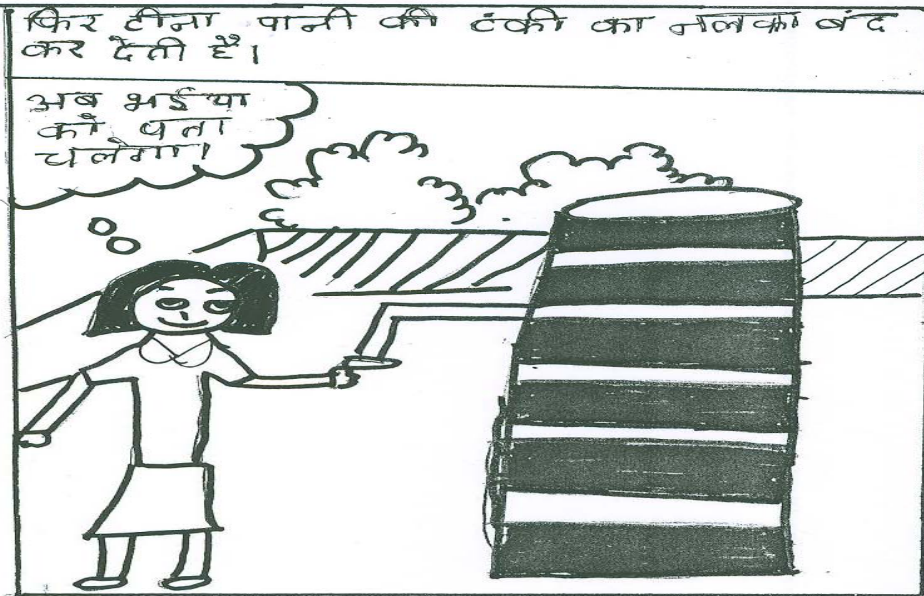 फिर टीना पानी की टंकी का नलका बंद
कर देती है।
अब भईया
को पता
चलेगा!